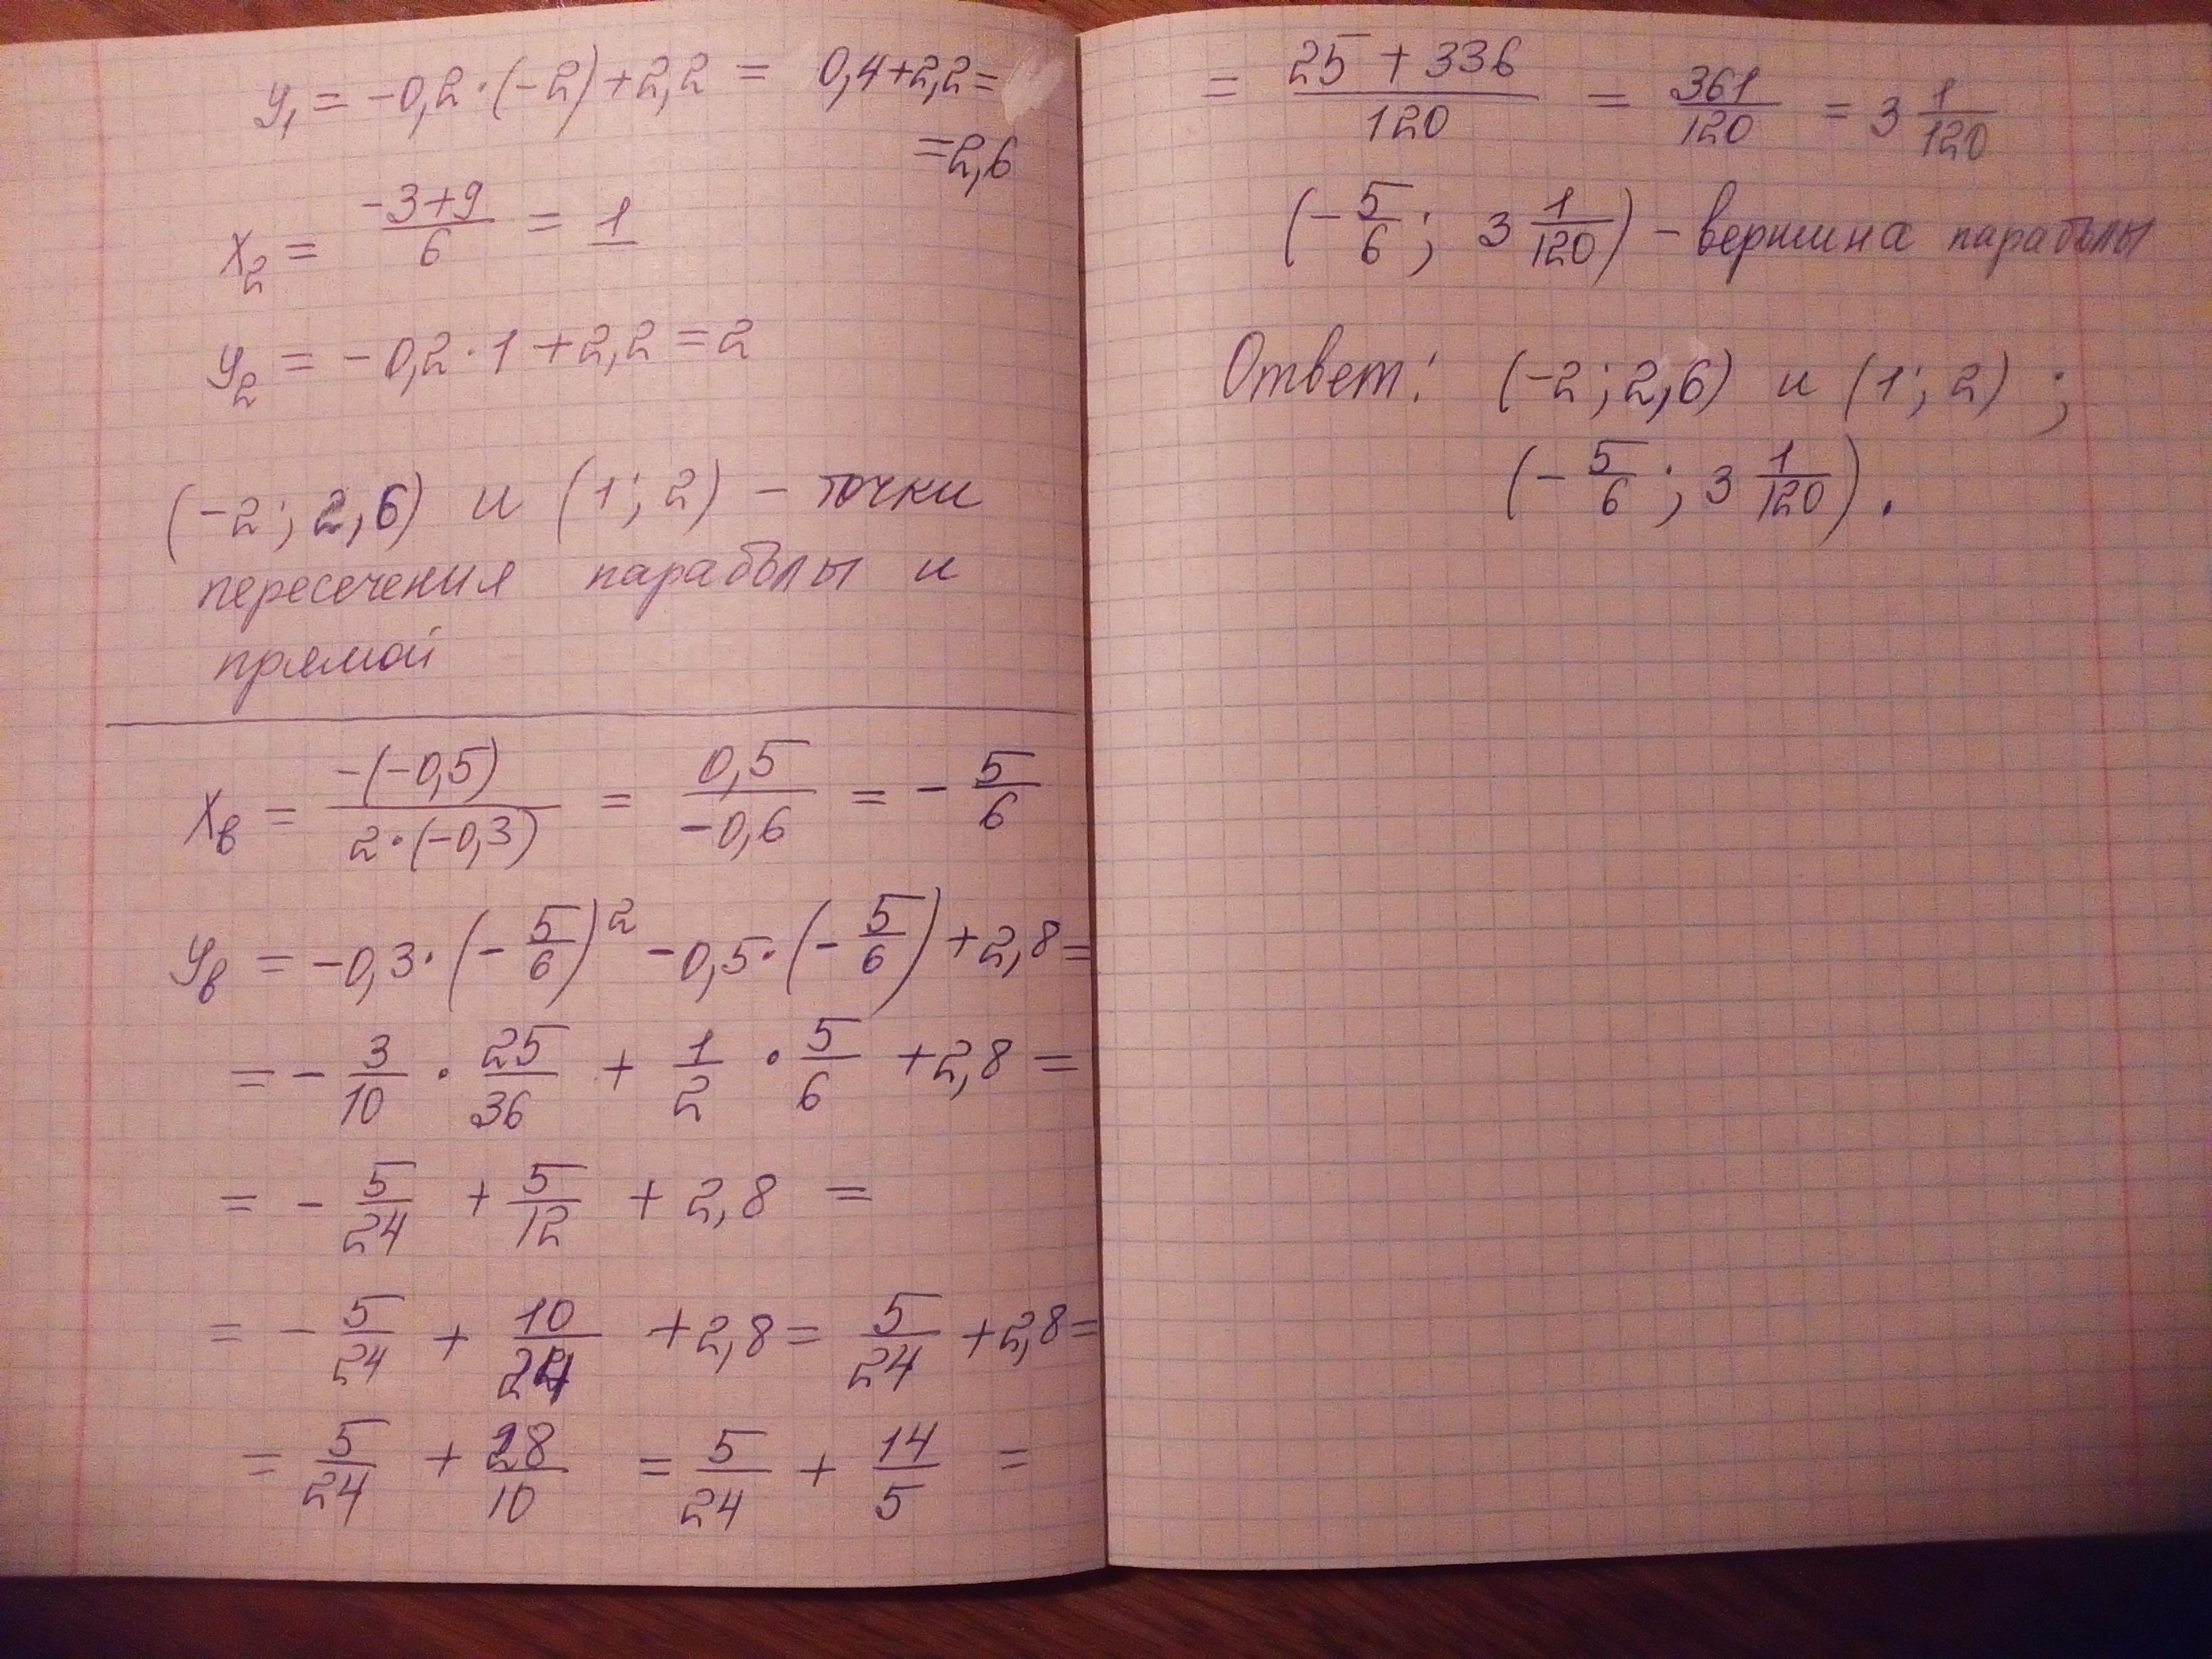 y₁ = -0,2·(-2)+2,2 = 0,4+2,2=
=2,6
x₂ = (-3+9)/6 = 1
y₂ = -0,2·1+2,2=2
(-2; 2,6) и (1; 2) - точки
пересечения параболы и
прямой
xв = -(-0,5)/(2·(-0,3)) = 0,5/(-0,6) = -5/6
yв = -0,3·(-5/6)² -0,5·(-5/6)+2,8=
= -3/10 · 25/36 + 1/2 · 5/6 +2,8 =
= -5/24 + 5/12 + 2,8 =
= -5/24 + 10/24 +2,8= 5/24 +2,8=
= 5/24 + 28/10 = 5/24 + 14/5 =
= (25+336)/120 = 361/120 = 3 1/120
(-5/6; 3 1/120) - вершина параболы
Ответ: (-2; 2,6) и (1; 2) ;
(-5/6; 3 1/120).